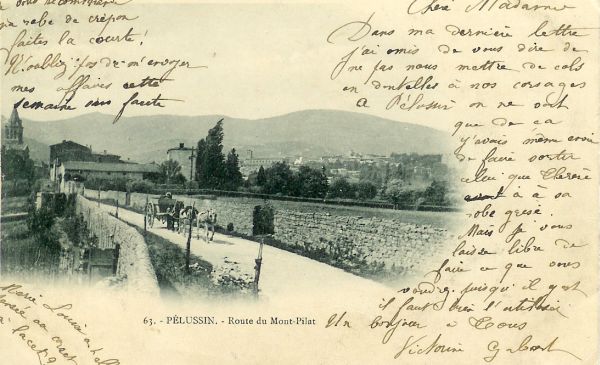 Chère Madame
Dans ma dernière lettre
j'ai omis de vous dire de
ne pas nous mettre de cols
en dentelles à nos corsages
A Pélussin on ne voit
que de ça
j'avais même envie
de faire porter
celui que Thérèse
avait à sa
robe grise.
Mais je vous
laisse libre de
faire ce que vous
voudrez puisqu'il est
il faut bien l'utiliser
Un bonjour à Tous
Victorine
vous
sa robe de crépon
faites la courte!
N'oubliez pas de m'envoyer
mes affaires cette
semaine sans faute
63. - PÉLUSSIN. - Route du Mont-Pilat
Marie Louise a
son corset
à lacet